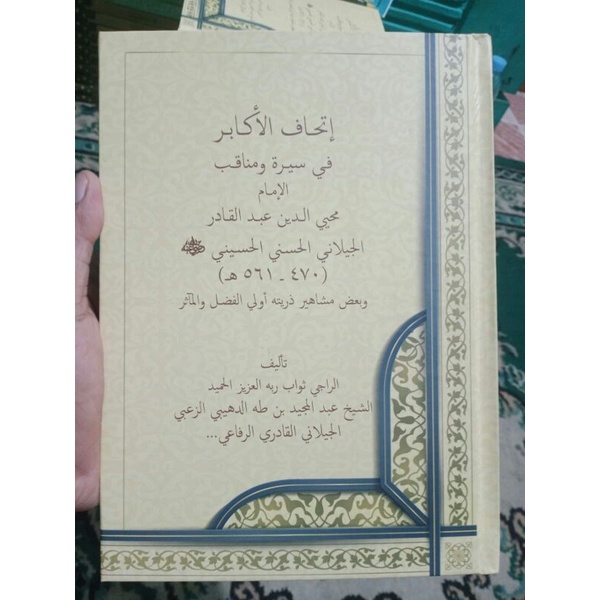 إتحاف الأكابر
في سيرة ومناقب
الإمام
محيي الدين عبد القادر
الجيلاني الحسني الحسيني
(٤٧٠ - ٥٦١ هـ)
وبعض مشاهير ذريته أولي الفضل والمآثر
تأليف
الراجي ثواب ربه العزيز الحميد
الشيخ عبد المجيد بن طه الدهيبي الزعبي
الجيلاني القادري الرفاعي...